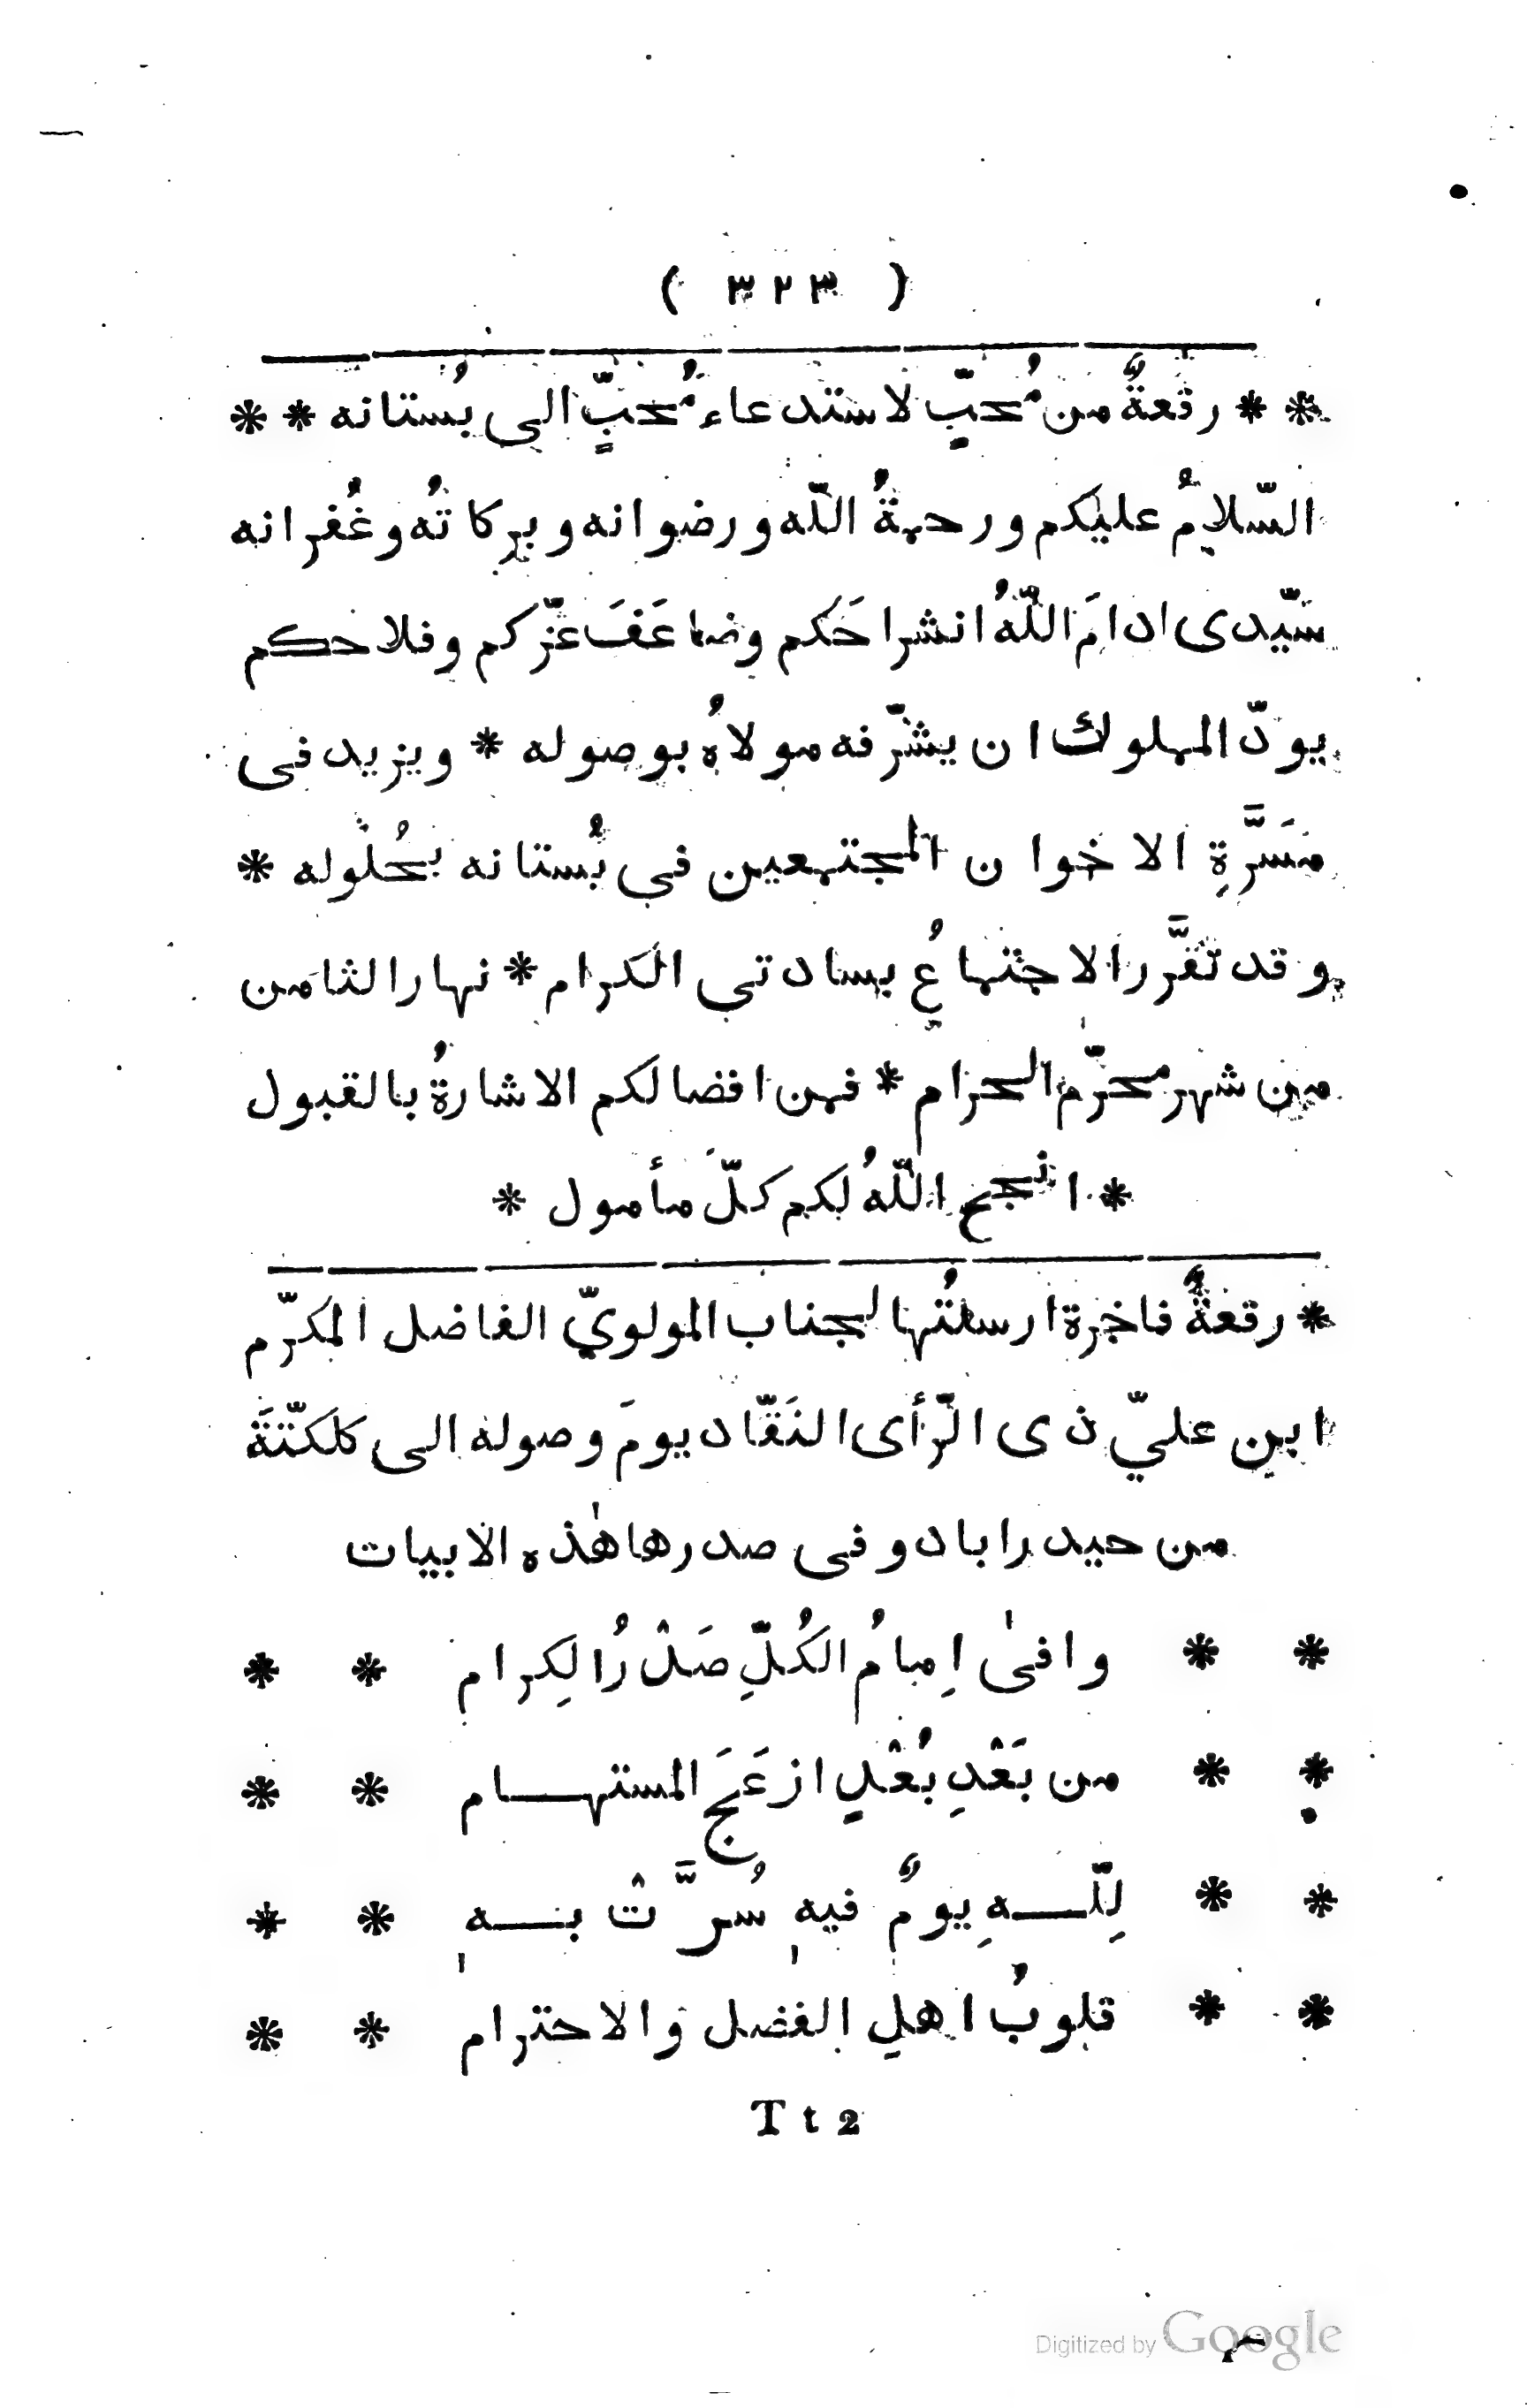 ( ٣٢٣ )
* * رقعةٌ من مُحبّ لاستدعاء مُحبٍّ الى بُستانه * *
السّلامُ عليكم ورحمةُ اللّه ورضوانه وبركاتُه وغُفرانه
سيّدى ادامَ اللّهُ انشراحَكم وضاعَفَ عزّكم وفلاحكم
يودّ المملوك ان يشرّفه مولاهُ بوصوله * ويزيد فى
مَسَرَّةِ الاخوان المجتمعين فى بُستانه بحُلُوله *
وقد تقرَّر الاجتماعُ بساداتى الكرام * نهار الثامن
من شهر محرّم الحرام * فمن افضالكم الاشارةُ بالقبول
* انجح اللّهُ لكم كلّ مأمول *
* رقعةٌ فاخرة ارسلتُها لجناب المولويّ الفاضل المكرّم
ابن عليّ ذى الرّأى النَقّاد يومَ وصوله الى كلكتّةَ
من حيدراباد وفى صدرها هٰذه الابيات
* * وافىٰ اِمامُ الكُلِّ صَدْرُ الكِرام * *
* * من بَعْدِ بُعْدٍ ازعَجَ المستهام * *
* * لِلّهِ يومٌ فيهِ سُرَّتْ بهِ * *
* * قلوبُ اهلِ الفضل والاحترام * *
T t 2
Digitized by Google